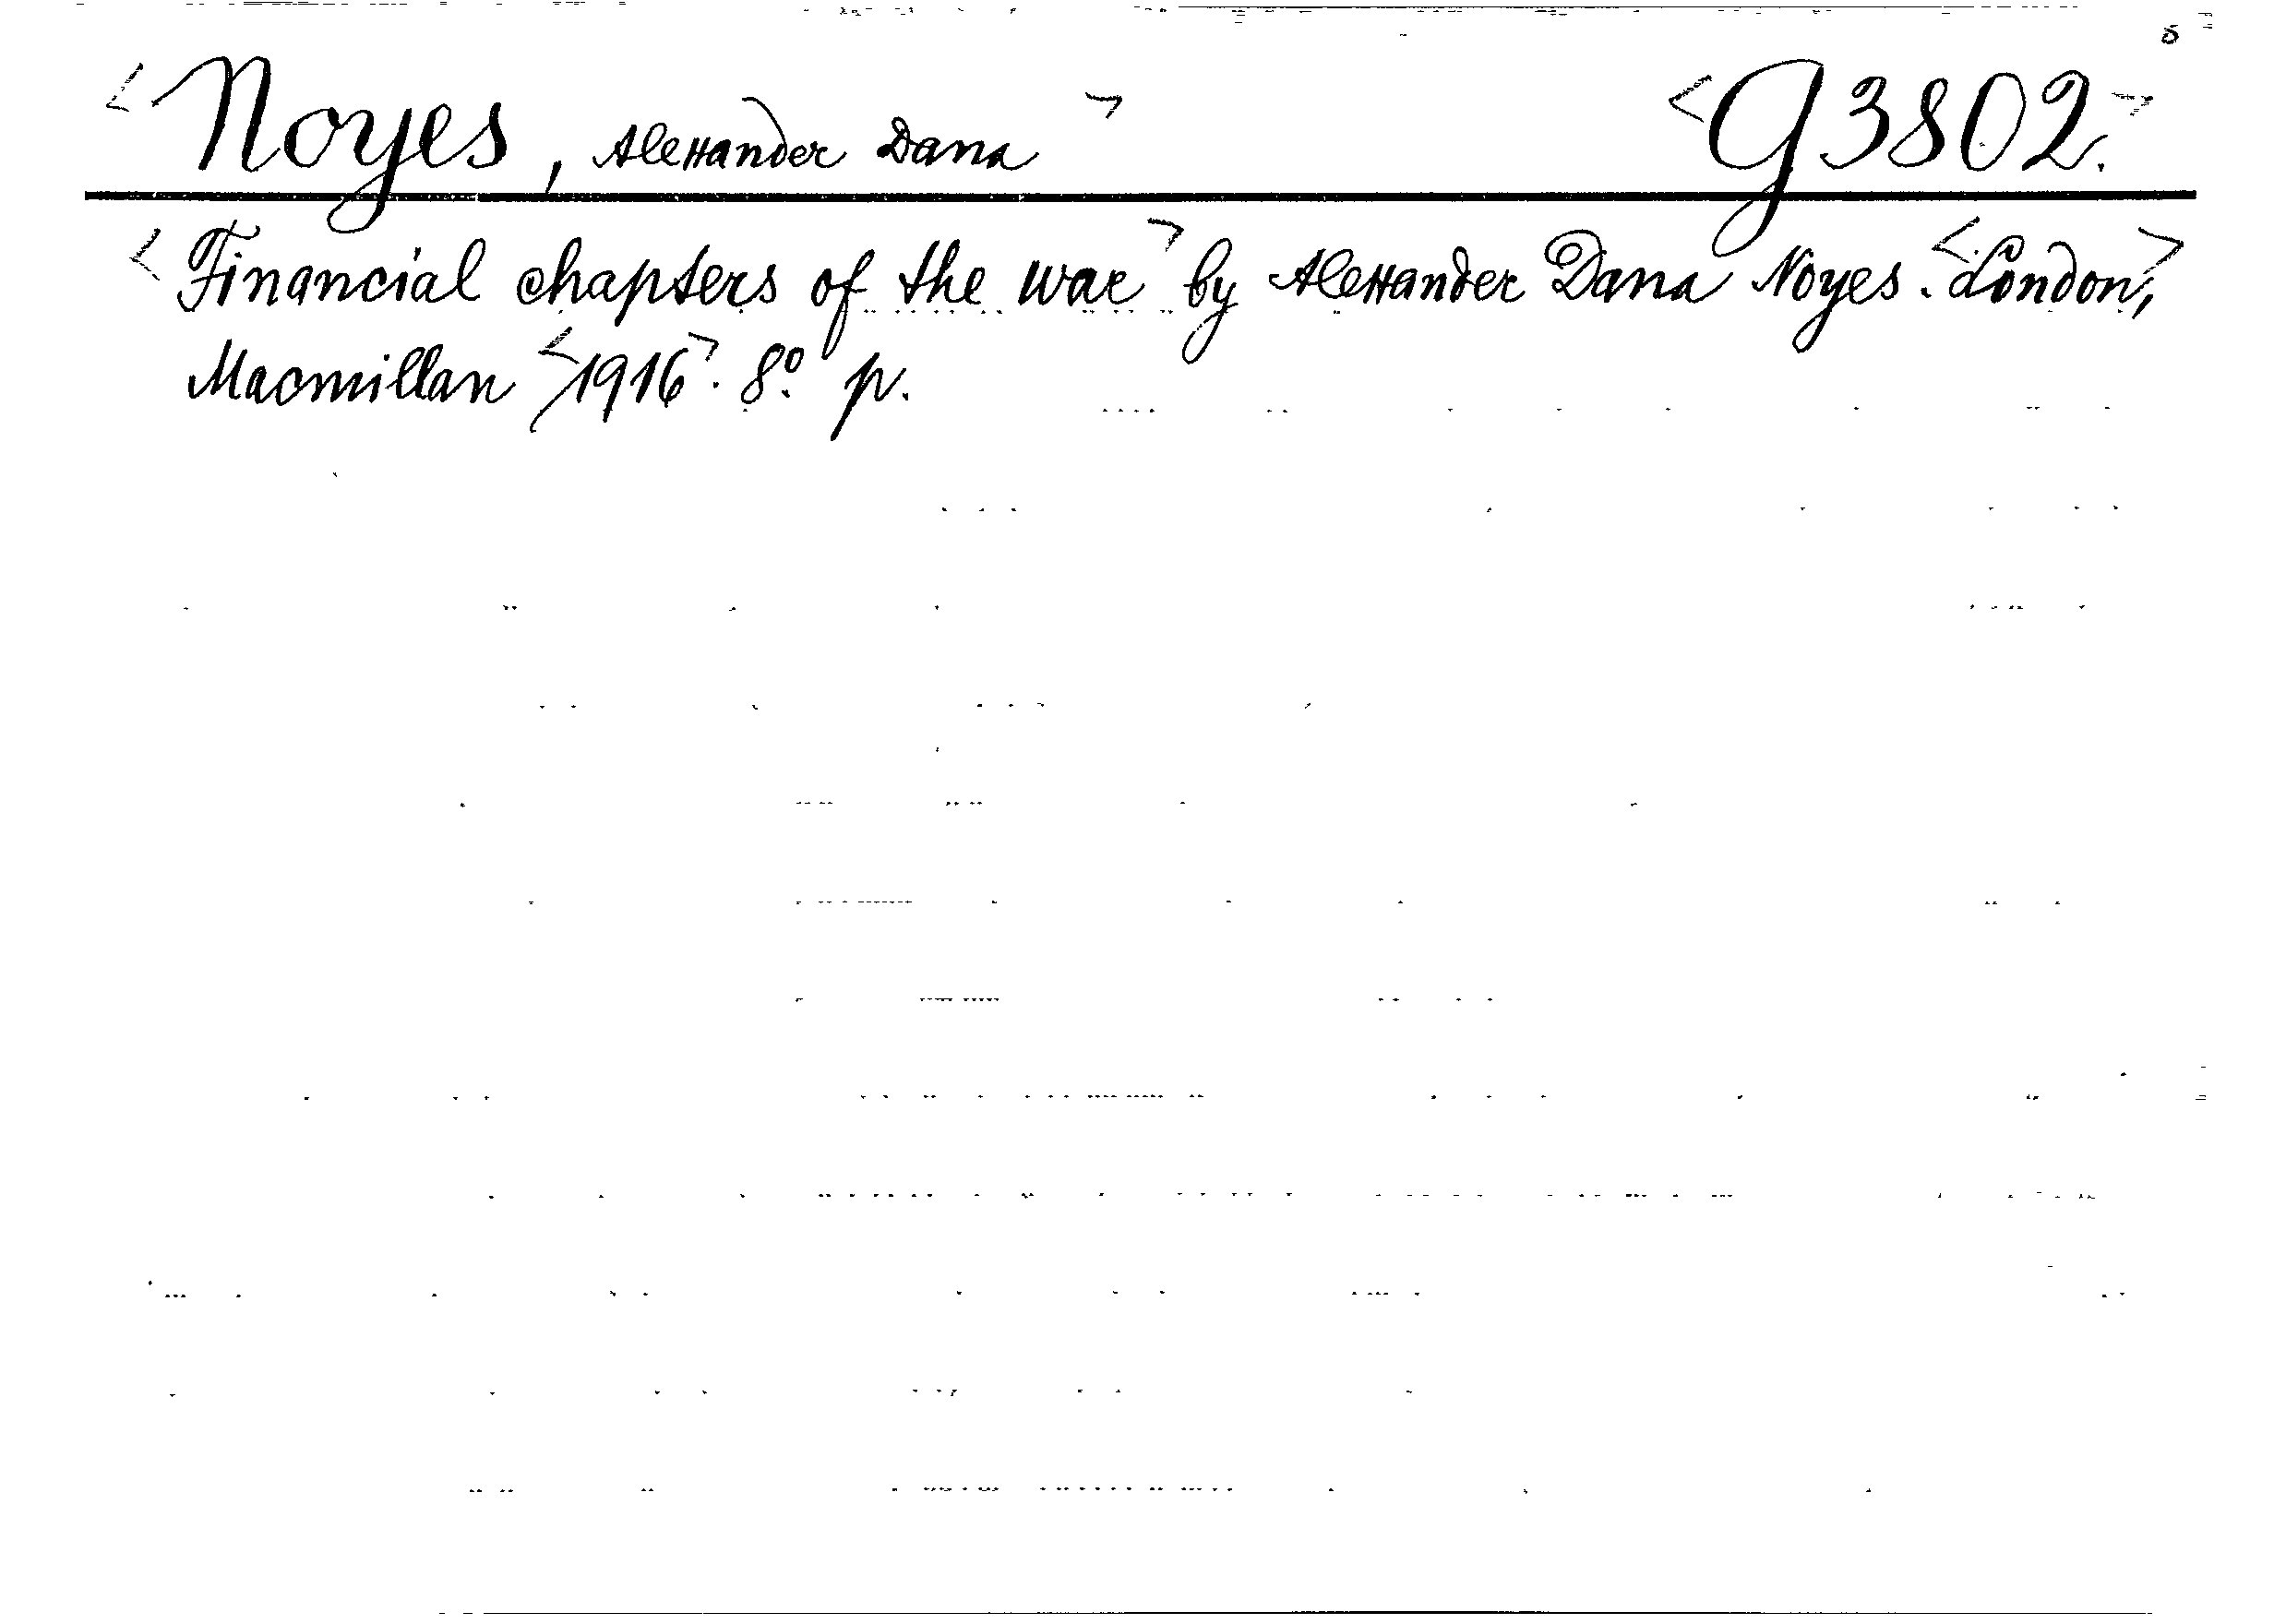 <Noyes, Alexander Dana> <G3802.>
<Financial chapters of the war> by Alexander Dana Noyes. <London,>
Macmillan <1916>. 8º. p.